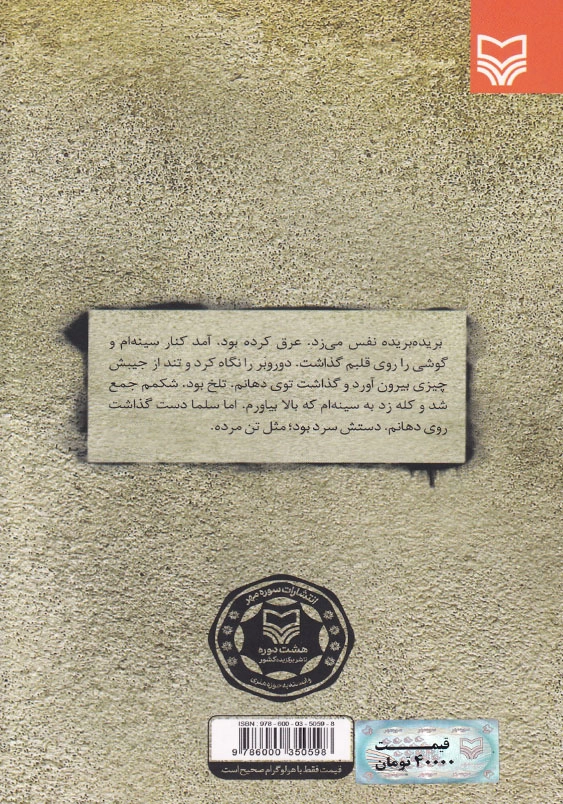 بریده‌بریده نفس می‌زد. عرق کرده بود. آمد کنار سینه‌ام و
گوشی را روی قلبم گذاشت. دوروبر را نگاه کرد و تند از جیبش
چیزی بیرون آورد و گذاشت توی دهانم. تلخ بود. شکمم جمع
شد و کله زد به سینه‌ام که بالا بیاورم. اما سلما دست گذاشت
روی دهانم. دستش سرد بود؛ مثل تن مرده.
انتشارات سوره مهر
هشت دوره
ناشر برگزیده کشور
وابسته به حوزه هنری
ISBN: 978-600-03-5059-8
9 786000 350598
قیمت فقط با هولوگرام صحیح است
قیمت
۴۰۰۰۰ تومان